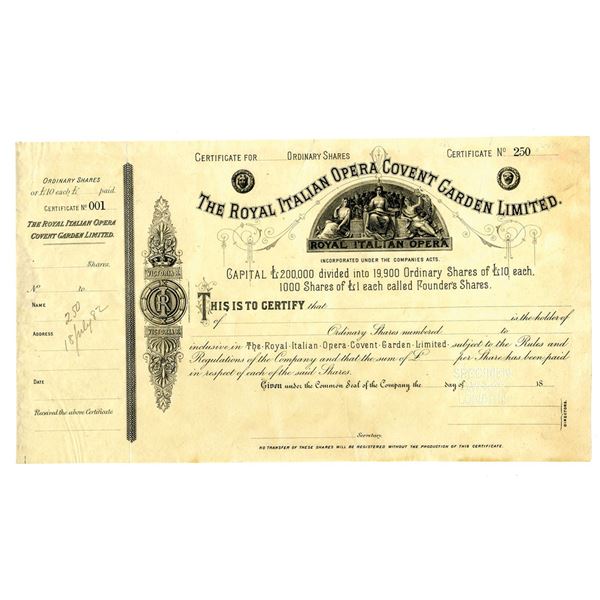 ORDINARY SHARES
OF £10 each £ paid.
CERTIFICATE No 001
THE ROYAL ITALIAN OPERA
COVENT GARDEN LIMITED.
Shares.
No to
NAME
250
18 July 82
ADDRESS
DATE
Received the above Certificate
VICTORIA R.I.
VICTORIA R.I.
CERTIFICATE FOR ORDINARY SHARES CERTIFICATE No 250
THE ROYAL ITALIAN OPERA COVENT GARDEN LIMITED.
ROYAL ITALIAN OPERA
INCORPORATED UNDER THE COMPANIES ACTS.
CAPITAL £200,000 divided into 19,900 Ordinary Shares of £10 each,
1000 Shares of £1 each called Founder's Shares.
THIS IS TO CERTIFY that
of is the holder of
Ordinary Shares numbered to
inclusive in The Royal Italian Opera Covent Garden Limited subject to the Rules and
Regulations of the Company and that the sum of £ per Share has been paid
in respect of each of the said Shares.
Given under the Common Seal of the Company the day of 18
SPECIMEN
LONDON
DIRECTORS.
Secretary.
NO TRANSFER OF THESE SHARES WILL BE REGISTERED WITHOUT THE PRODUCTION OF THIS CERTIFICATE.